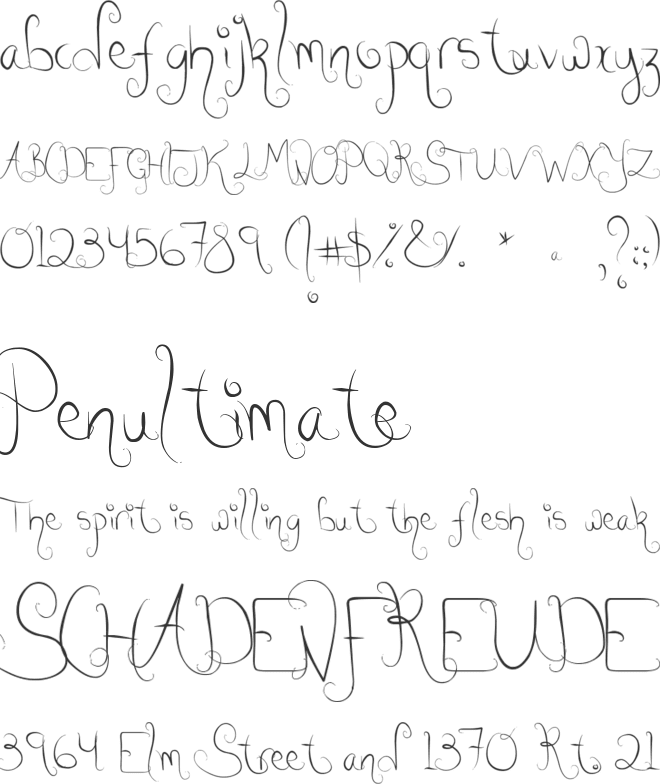 abcdefghijklmnopqrstuvwxyz
ABCDEFGHIJKLMNOPQRSTUVWXYZ
0123456789 (!#$%&/. * a ,?:;)
Penultimate
The spirit is willing but the flesh is weak
SCHADENFREUDE
3964 Elm Street and 1370 Rt. 21